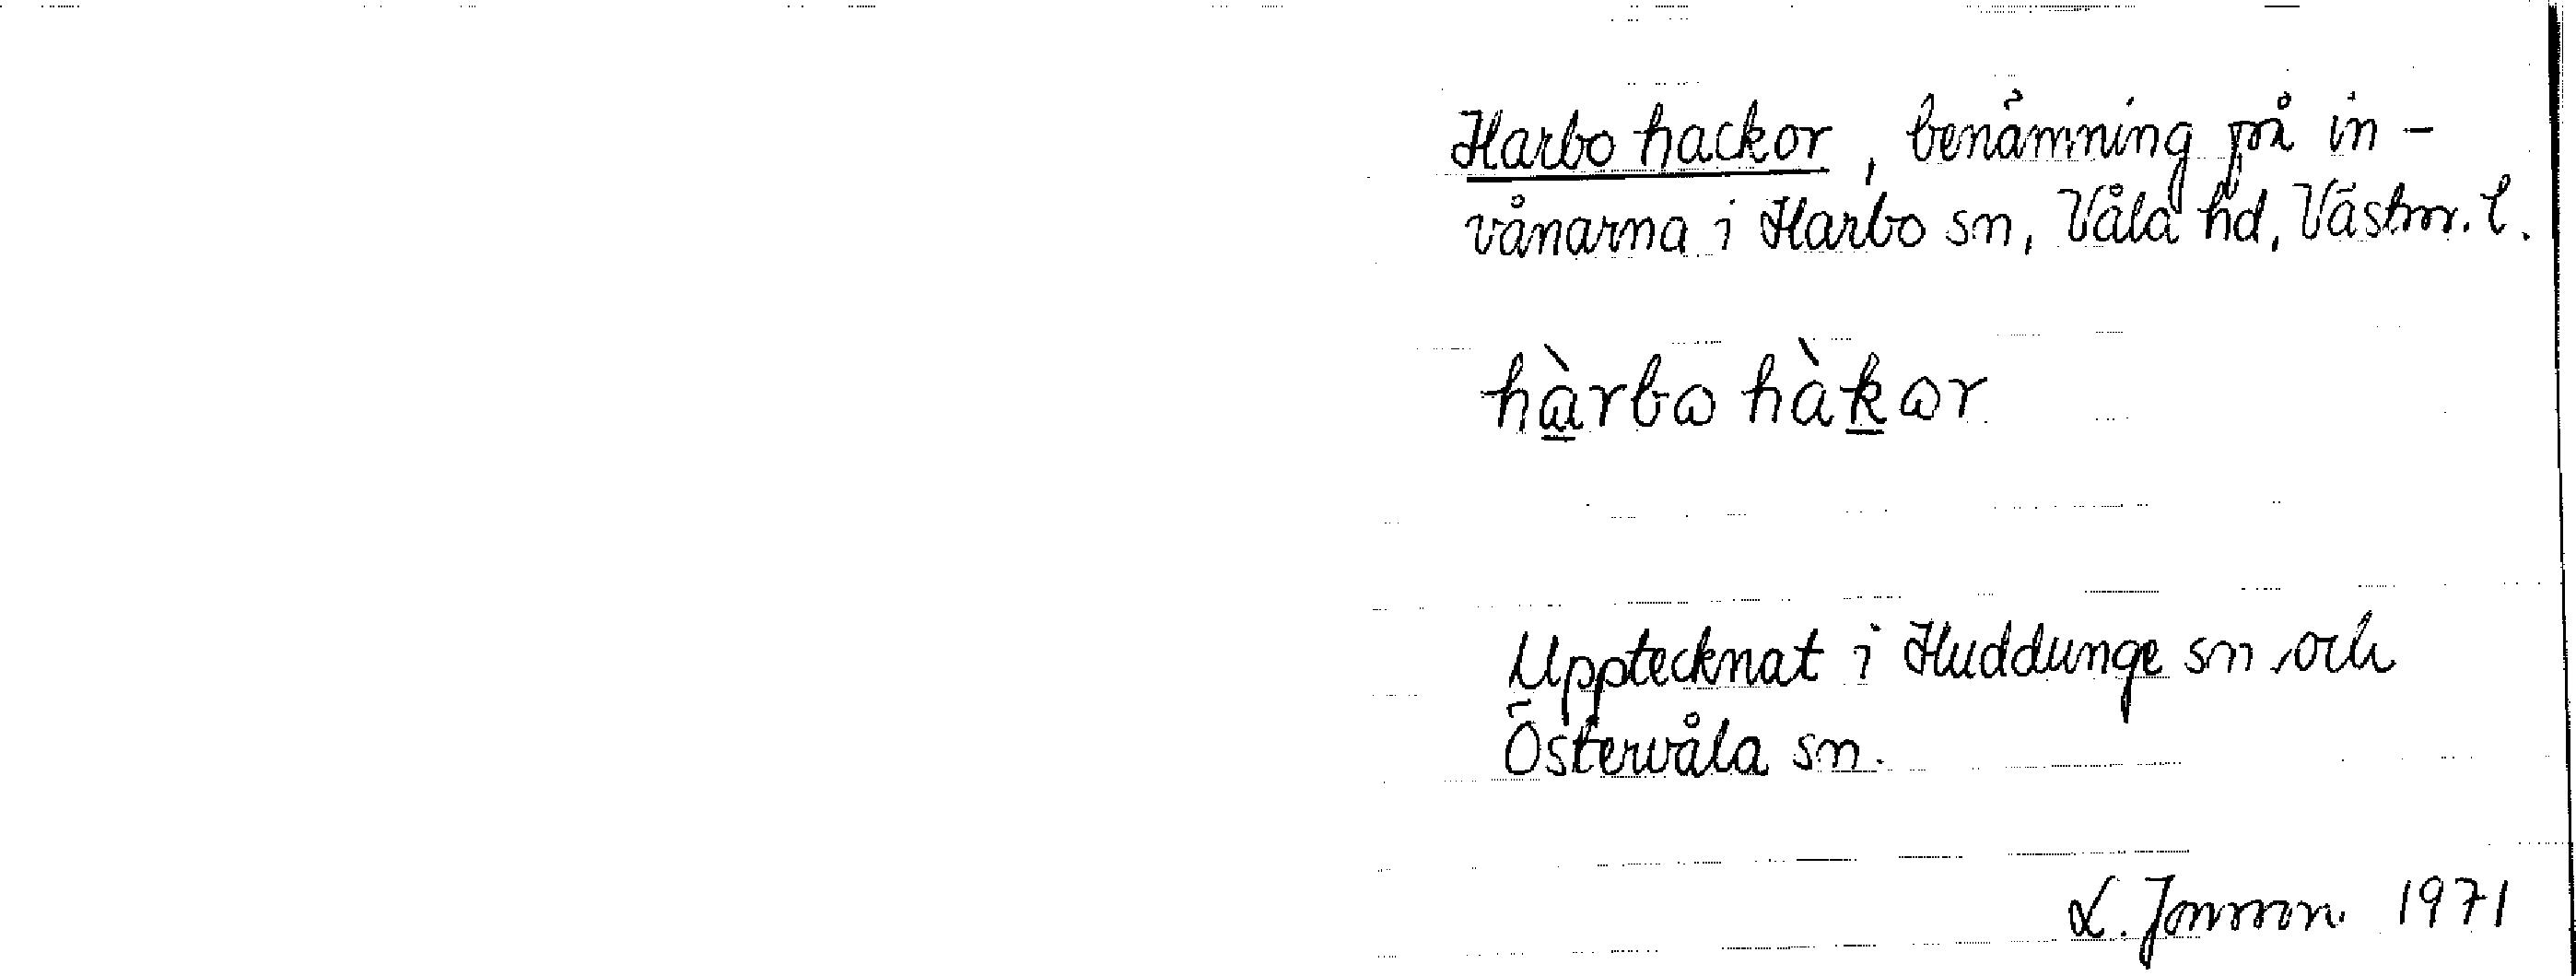 Harbo hackor, benämning på in-
vånarna i Harbo sn, Våla hd, Västm. l.
hàrbɷ hàkɷr
Upptecknat i Huddunge sn och
Östervåla sn.
L. Jonsson 1971